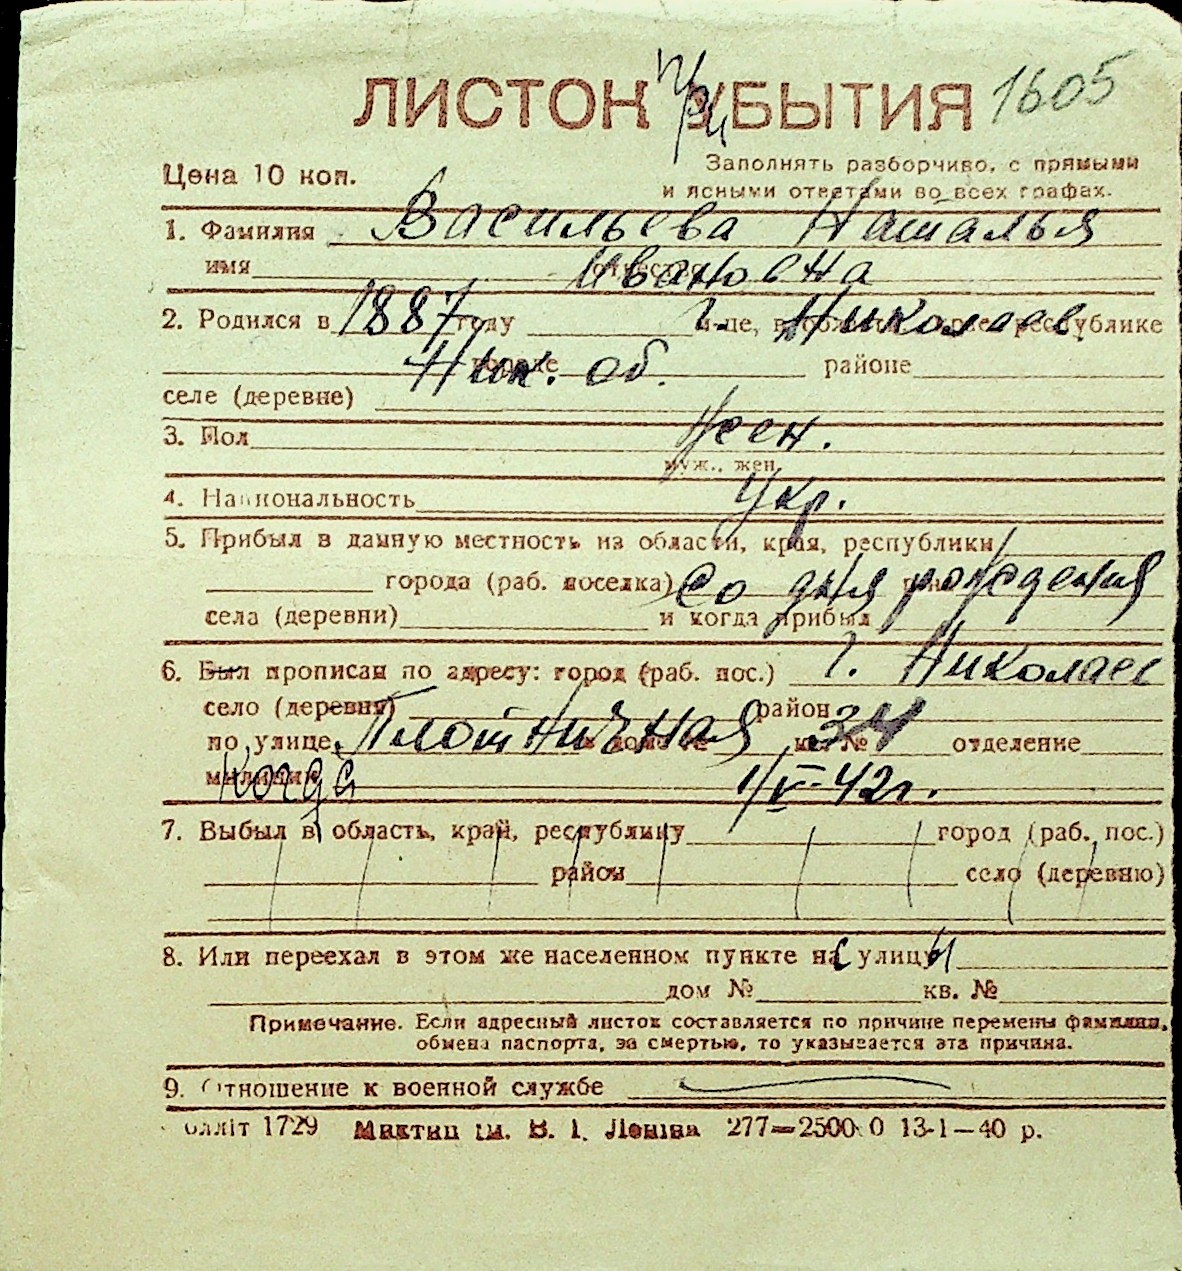 ЛИСТОК УБЫТИЯ 1605
Цена 10 коп.
Заполнять разборчиво, с прямыми
и ясными ответами во всех графах.
1. Фамилия Васильева Наталья
имя отчество Ивановна
2. Родился в 1887 году г. Николаев республике
Ник. об. районе
селе (деревне)
3. Пол Жен.
муж., жен.
4. Национальность Укр.
5. Прибыл в данную местность из области, края, республики
города (раб. поселка) со дня рождения
села (деревни) и когда прибыл
6. Был прописан по адресу: город (раб. пос.) г. Николаев
село (деревня) район
по улице Плотничная 34 отделение
милиции когда 1/V-42г.
7. Выбыл в область, край, республику город (раб. пос.)
район село (деревню)
8. Или переехал в этом же населенном пункте на с улицы
дом № кв. №
Примечание. Если адресный листок составляется по причине перемены фамилии,
обмена паспорта, за смертью, то указывается эта причина.
9. Отношение к военной службе
1729 ім. В. І. Леніна 277—2500 13-1—40 р.